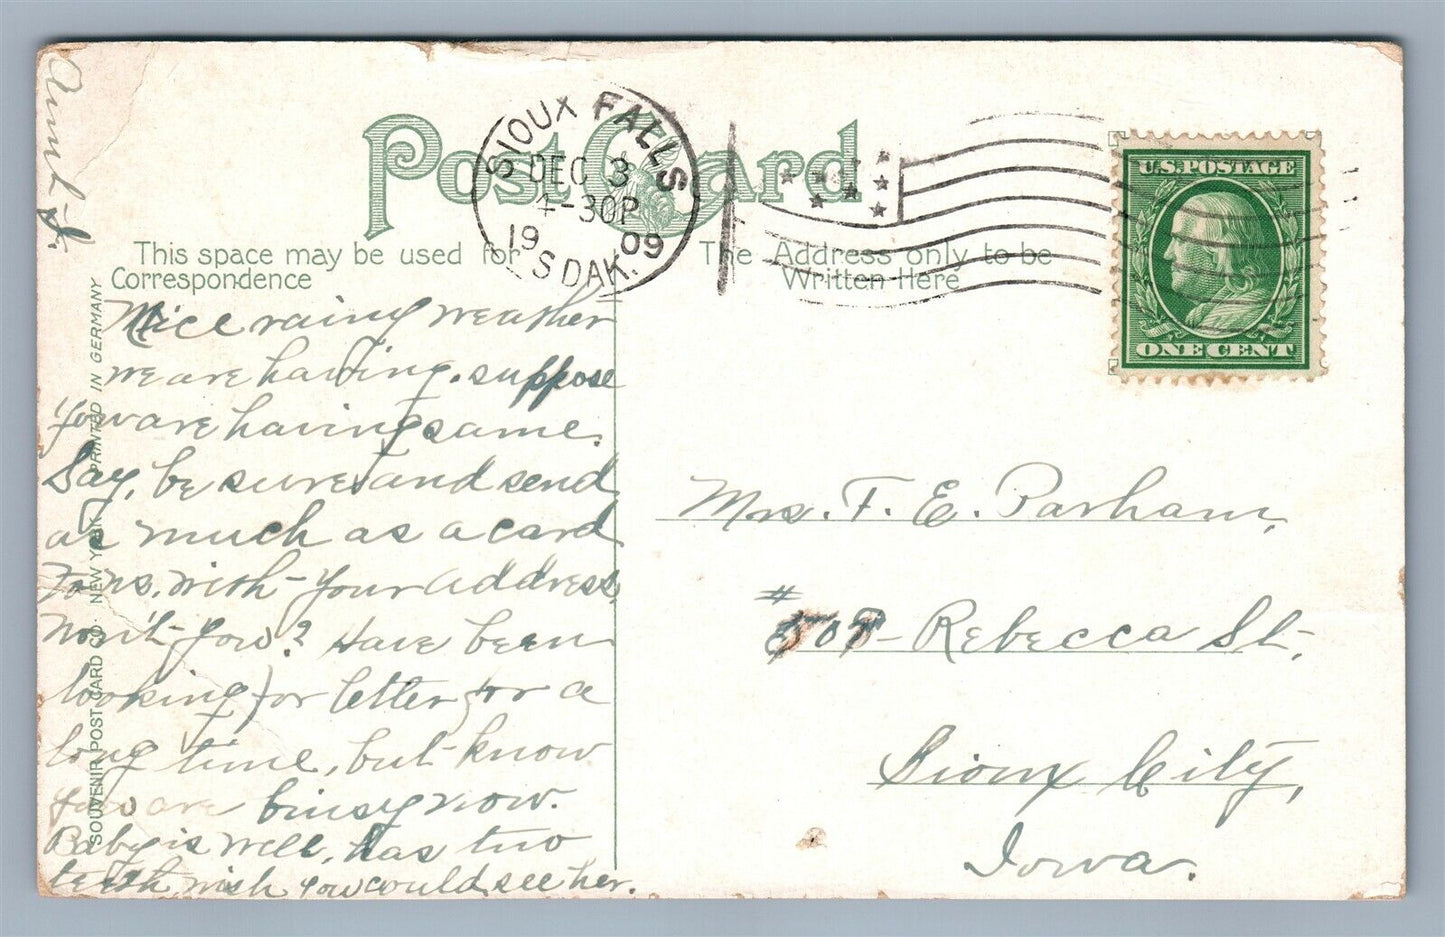 Aunt J.
Post Card
SIOUX FALLS
DEC 3
4-30P
19 09
S DAK.
U.S. POSTAGE
ONE CENT
This space may be used for
Correspondence
The Address only to be
Written Here
SOUVENIR POST CARD CO. NEW YORK PRINTED IN GERMANY
Nice rainy weather
we are having. suppose
You are having same.
Say, be sure and send
as much as a card
To us, with your address,
Won't you? Have been
looking for letter for a
long time, but know
you are buisy now.
Baby is well, has two
teeth, wish you could see her.
Mrs. F. E. Parham,
# 508 Rebecca St.,
Sioux City,
Iowa.